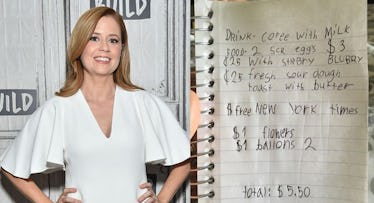 BUILD
BUILD
Drink: cofee with MiLK
food- 2 scr eggs $3
¢25 with strbry BLUBRY
¢25 fresh sour dough
toast with butter
$ free NEW York times
$1 flowers
$1 ballons 2
total: $5.50